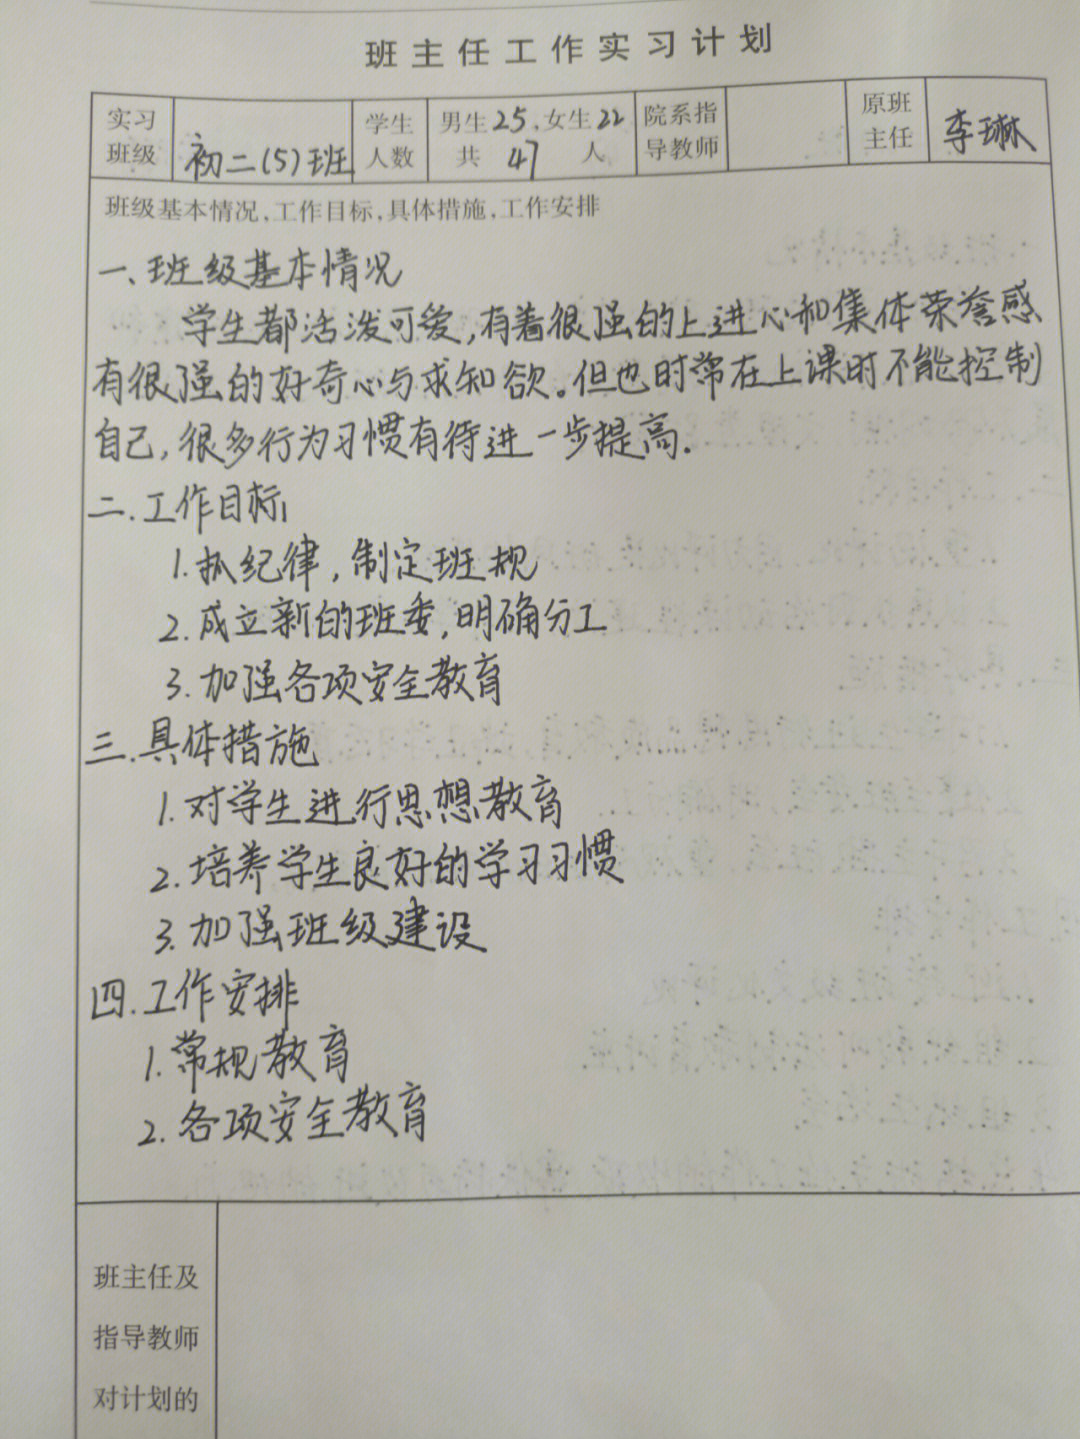 班主任工作实习计划
实习班级 初二(5)班 学生人数 男生25.女生22 共47人 院系指导教师 原班主任 李琳
班级基本情况,工作目标,具体措施,工作安排
一、班级基本情况
学生都活泼可爱,有着很强的上进心和集体荣誉感
有很强的好奇心与求知欲。但也时常在上课时不能控制
自己,很多行为习惯有待进一步提高.
二.工作目标
1.抓纪律,制定班规
2.成立新的班委,明确分工
3.加强各项安全教育
三.具体措施
1.对学生进行思想教育
2.培养学生良好的学习习惯
3.加强班级建设
四.工作安排
1.常规教育
2.各项安全教育
班主任及
指导教师
对计划的